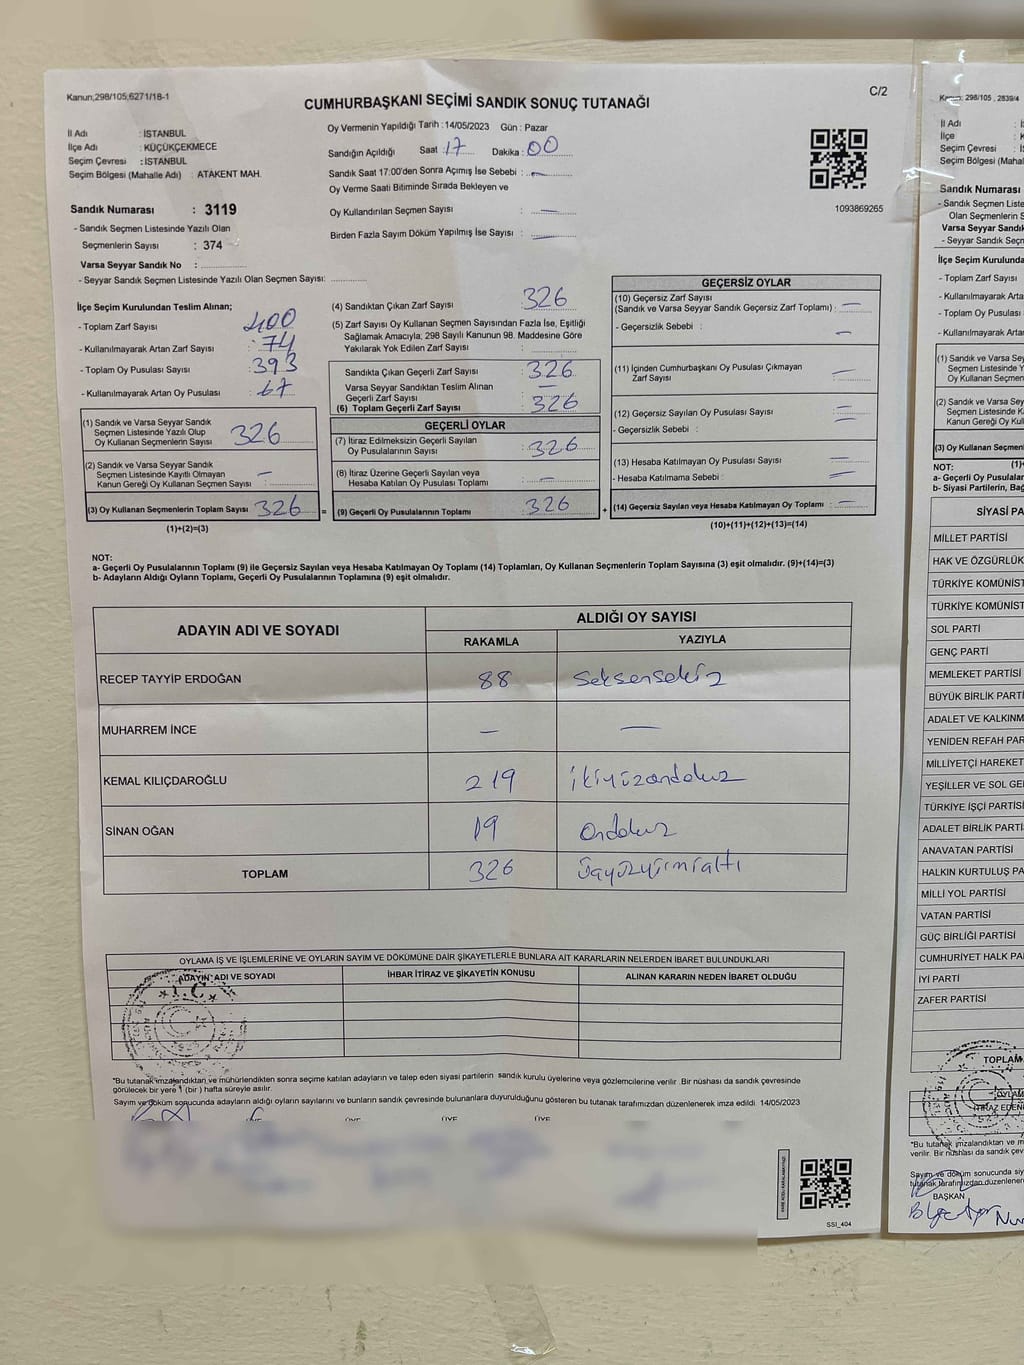 Kanun;298/105,6271/18-1
C/2
CUMHURBAŞKANI SEÇİMİ SANDIK SONUÇ TUTANAĞI
İl Adı : İSTANBUL
İlçe Adı : KÜÇÜKÇEKMECE
Seçim Çevresi : İSTANBUL
Seçim Bölgesi (Mahalle Adı) : ATAKENT MAH.
Sandık Numarası : 3119
- Sandık Seçmen Listesinde Yazılı Olan
Seçmenlerin Sayısı : 374
Varsa Seyyar Sandık No :
- Seyyar Sandık Seçmen Listesinde Yazılı Olan Seçmen Sayısı:
Oy Vermenin Yapıldığı Tarih :14/05/2023 Gün : Pazar
Sandığın Açıldığı Saat :17 Dakika :00
Sandık Saat 17:00'den Sonra Açımış İse Sebebi : —
Oy Verme Saati Bitiminde Sırada Bekleyen ve
Oy Kullandırılan Seçmen Sayısı : —
Birden Fazla Sayım Döküm Yapılmış İse Sayısı : —
1093869265
İlçe Seçim Kurulundan Teslim Alınan;
- Toplam Zarf Sayısı : 400
- Kullanılmayarak Artan Zarf Sayısı : 74
- Toplam Oy Pusulası Sayısı : 393
- Kullanılmayarak Artan Oy Pusulası : 67
(1) Sandık ve Varsa Seyyar Sandık
Seçmen Listesinde Yazılı Olup
Oy Kullanan Seçmenlerin Sayısı : 326
(2) Sandık ve Varsa Seyyar Sandık
Seçmen Listesinde Kayıtlı Olmayan
Kanun Gereği Oy Kullanan Seçmen Sayısı : —
(3) Oy Kullanan Seçmenlerin Toplam Sayısı : 326 =
(1)+(2)=(3)
(4) Sandıktan Çıkan Zarf Sayısı : 326
(5) Zarf Sayısı Oy Kullanan Seçmen Sayısından Fazla İse, Eşitliği
Sağlamak Amacıyla, 298 Sayılı Kanunun 98. Maddesine Göre
Yakılarak Yok Edilen Zarf Sayısı :
Sandıkta Çıkan Geçerli Zarf Sayısı : 326
Varsa Seyyar Sandıktan Teslim Alınan
Geçerli Zarf Sayısı : —
(6) Toplam Geçerli Zarf Sayısı : 326
GEÇERLİ OYLAR
(7) İtiraz Edilmeksizin Geçerli Sayılan
Oy Pusulalarının Sayısı : 326
(8) İtiraz Üzerine Geçerli Sayılan veya
Hesaba Katılan Oy Pusulası Toplamı : —
(9) Geçerli Oy Pusulalarının Toplamı : 326 +
GEÇERSİZ OYLAR
(10) Geçersiz Zarf Sayısı
(Sandık ve Varsa Seyyar Sandık Geçersiz Zarf Toplamı) : —
- Geçersizlik Sebebi : —
(11) İçinden Cumhurbaşkanı Oy Pusulası Çıkmayan
Zarf Sayısı : —
(12) Geçersiz Sayılan Oy Pusulası Sayısı : —
- Geçersizlik Sebebi : —
(13) Hesaba Katılmayan Oy Pusulası Sayısı : —
- Hesaba Katılmama Sebebi : —
(14) Geçersiz Sayılan veya Hesaba Katılmayan Oy Toplamı : —
(10)+(11)+(12)+(13)=(14)
NOT:
a- Geçerli Oy Pusulaların Toplamı (9) ile Geçersiz Sayılan Oy veya Hesaba Katılmayan Oy Toplamı (14) Toplamları, Oy Kullanan Seçmenlerin Toplam Sayısına (3) eşit olmalıdır. (9)+(14)=(3)
b- Adayların Aldığı Oyların Toplamı, Geçerli Oy Pusulalarının Toplamına (9) eşit olmalıdır.
ADAYIN ADI VE SOYADI ALDIĞI OY SAYISI
RAKAMLA YAZIYLA
RECEP TAYYİP ERDOĞAN 88 Seksensekiz
MUHARREM İNCE — —
KEMAL KILIÇDAROĞLU 219 ikiyüzondokuz
SİNAN OĞAN 19 Ondokuz
TOPLAM 326 üçyüzyirmialtı
OYLAMA İŞ VE İŞLEMLERİNE VE OYLARIN SAYIM VE DÖKÜMÜNE DAİR ŞİKAYETLERLE BUNLARA AİT KARARLARIN NELERDEN İBARET BULUNDUKLARI
ADAYIN ADI VE SOYADI İHBAR İTİRAZ VE ŞİKAYETİN KONUSU ALINAN KARARIN NEDEN İBARET OLDUĞU
T.C.
"Bu tutanak imzalandıktan ve mühürlendikten sonra seçime katılan adayların ve talep eden siyasi partilerin sandık kurulu üyelerine veya gözlemcilerine verilir. Bir nüshası da sandık çevresinde
görülecek bir yere 1 (bir) hafta süreyle asılır.
Sayım ve döküm sonucunda adayların aldığı oyların sayılarını ve bunların sandık çevresinde bulunanlara duyurulduğunu gösteren bu tutanak tarafımızdan düzenlenerek imza edildi. 14/05/2023
ÜYE ÜYE ÜYE
SSİ_404
298/105 , 2839/4
İl Adı :
İlçe :
Seçim Çevresi :
Seçim Bölgesi (Maha
Sandık Numarası
- Sandık Seçmen Liste
Olan Seçmenlerin Sayıs
Varsa Seyyar Sandık
- Seyyar Sandık Seçm
İlçe Seçim Kurulunda
- Toplam Zarf Sayısı
- Kullanılmayarak Artan
- Toplam Oy Pusulası
- Kullanılmayarak Artan
(1) Sandık ve Varsa Sey
Seçmen Listesinde Yaz
Oy Kullanan Seçmenle
(2) Sandık ve Varsa Sey
Seçmen Listesinde Ka
Kanun Gereği Oy Kull
(3) Oy Kullanan Seçmenl
NOT: (1)
a- Geçerli Oy Pusulalar
b- Siyasi Partilerin, Bağ
SİYASİ PA
MİLLET PARTİSİ
HAK VE ÖZGÜRLÜK
TÜRKİYE KOMÜNİST
TÜRKİYE KOMÜNİST
SOL PARTİ
GENÇ PARTİ
MEMLEKET PARTİSİ
BÜYÜK BİRLİK PARTİ
ADALET VE KALKINM
YENİDEN REFAH PAR
MİLLİYETÇİ HAREKET
YEŞİLLER VE SOL GE
TÜRKİYE İŞÇİ PARTİSİ
ADALET BİRLİK PARTİ
ANAVATAN PARTİSİ
HALKIN KURTULUŞ PA
MİLLİ YOL PARTİSİ
VATAN PARTİSİ
GÜÇ BİRLİĞİ PARTİSİ
CUMHURİYET HALK PA
İYİ PARTİ
ZAFER PARTİSİ
TOPLAM
OYLAM
İTİRAZ EDEN
"Bu tutanak imzalandıktan ve m
verilir. Bir nüshası da sandık çev
Sayım ve döküm sonucunda siy
tutanak tarafımızdan düzenlener
BAŞKAN